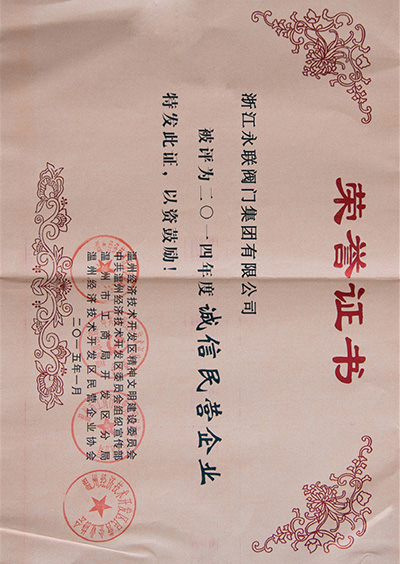 荣誉证书
浙江永联阀门集团有限公司
被评为二〇一四年度诚信民营企业
特发此证，以资鼓励！
温州经济技术开发区精神文明建设委员会
中共温州经济技术开发区委员会组织宣传部
温州市工商局开发区分局
温州经济技术开发区民营企业协会
二〇一五年一月